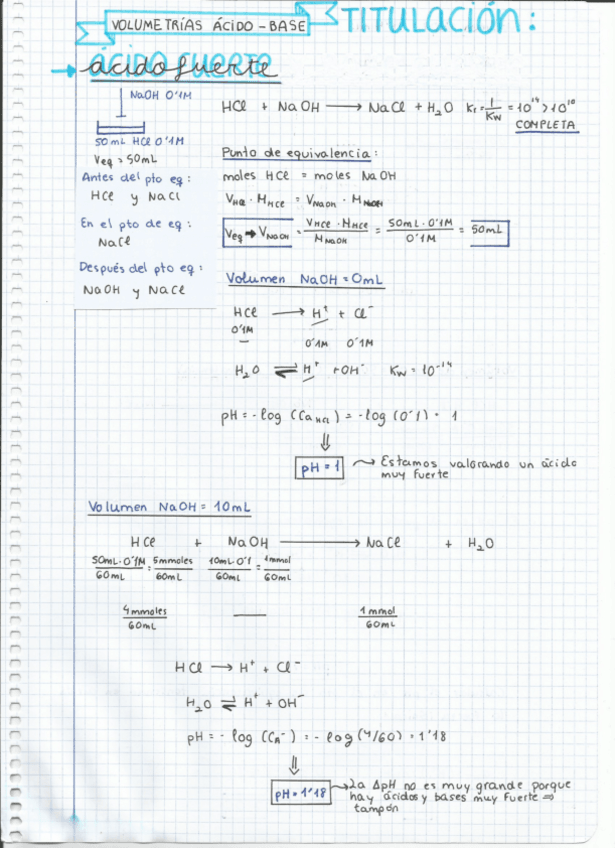 VOLUMETRÍAS ÁCIDO-BASE
TITULACIÓN:
ÁCIDO FUERTE
ácido fuerte
NaOH 0'1M
50mL HCl 0'1M
Veq = 50mL
Antes del pto eq:
HCl y NaCl
En el pto de eq:
NaCl
Después del pto eq:
NaOH y NaCl
HCl + NaOH ⟶ NaCl + H₂O Kt = 1/Kw = 10¹⁴ > 10¹⁰
COMPLETA
Punto de equivalencia:
moles HCl = moles NaOH
V HCl · M HCl = V NaOH · M NaOH
Veq → V NaOH = V HCl · M HCl / M NaOH = 50mL · 0'1M / 0'1M = 50mL
Volumen NaOH = 0mL
HCl ⟶ H⁺ + Cl⁻
0'1M
0'1M 0'1M
H₂O ⇌ H⁺ + OH⁻ Kw = 10⁻¹⁴
pH = -log (Ca HCl) = -log (0'1) = 1
⇓
pH = 1 → Estamos valorando un ácido
muy fuerte
Volumen NaOH = 10mL
HCl + NaOH ⟶ NaCl + H₂O
50mL·0'1M / 60mL = 5mmoles / 60mL 10mL·0'1 / 60mL = 1mmol / 60mL
4mmoles / 60mL — 1mmol / 60mL
HCl ⟶ H⁺ + Cl⁻
H₂O ⇌ H⁺ + OH⁻
pH = -log (Ca⁻) = -log (4/60) = 1'18
⇓
pH = 1'18 → La ΔpH no es muy grande porque
hay ácidos y bases muy fuerte ⇒
tampón